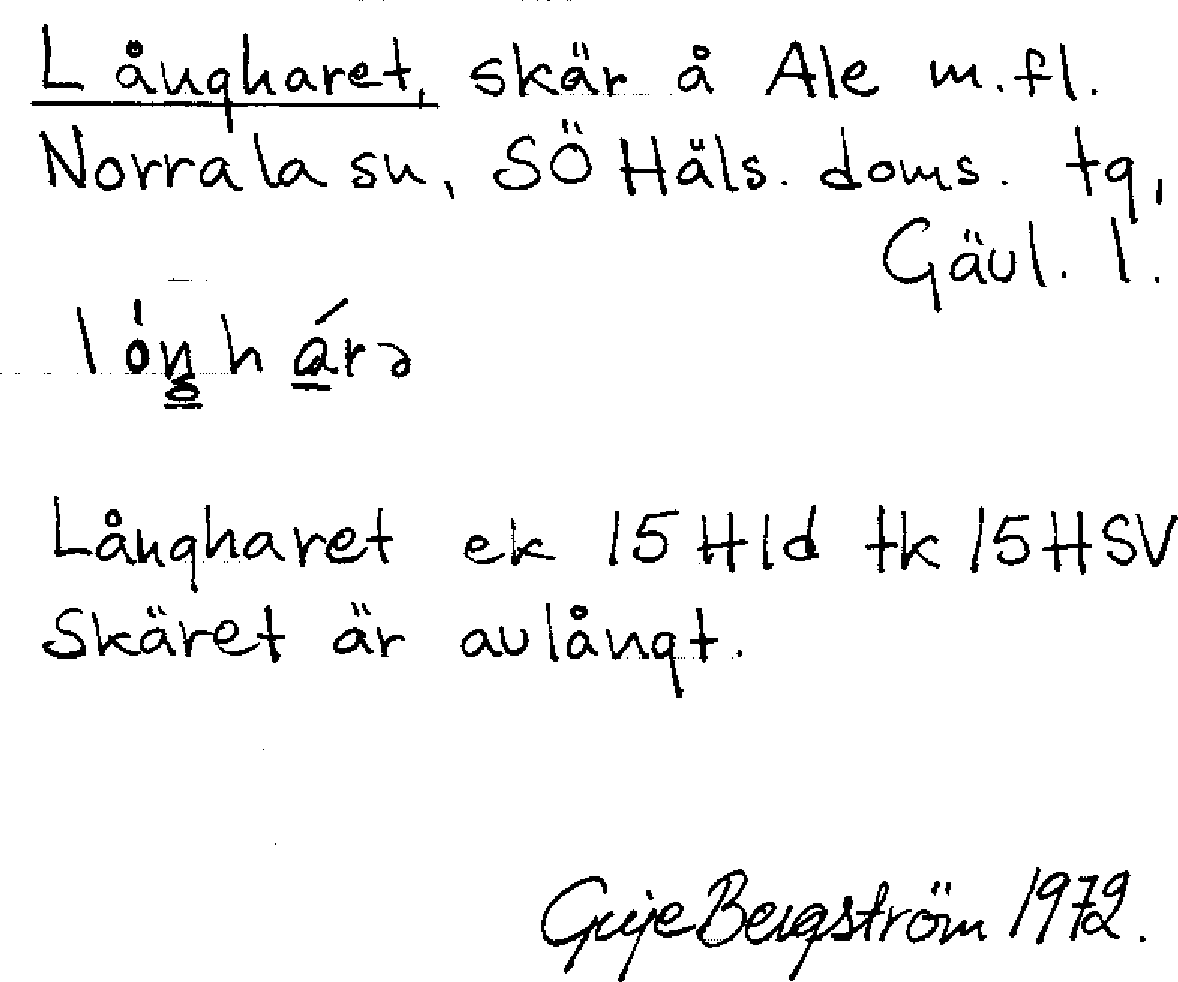 Långharet, skär å Ale m.fl.
Norrala sn, SÖ Häls. doms. tg,
Gävl. l.
Långharet ek 15 H1d tk 15 H SV
Skäret är avlångt.
Bergström 1972.